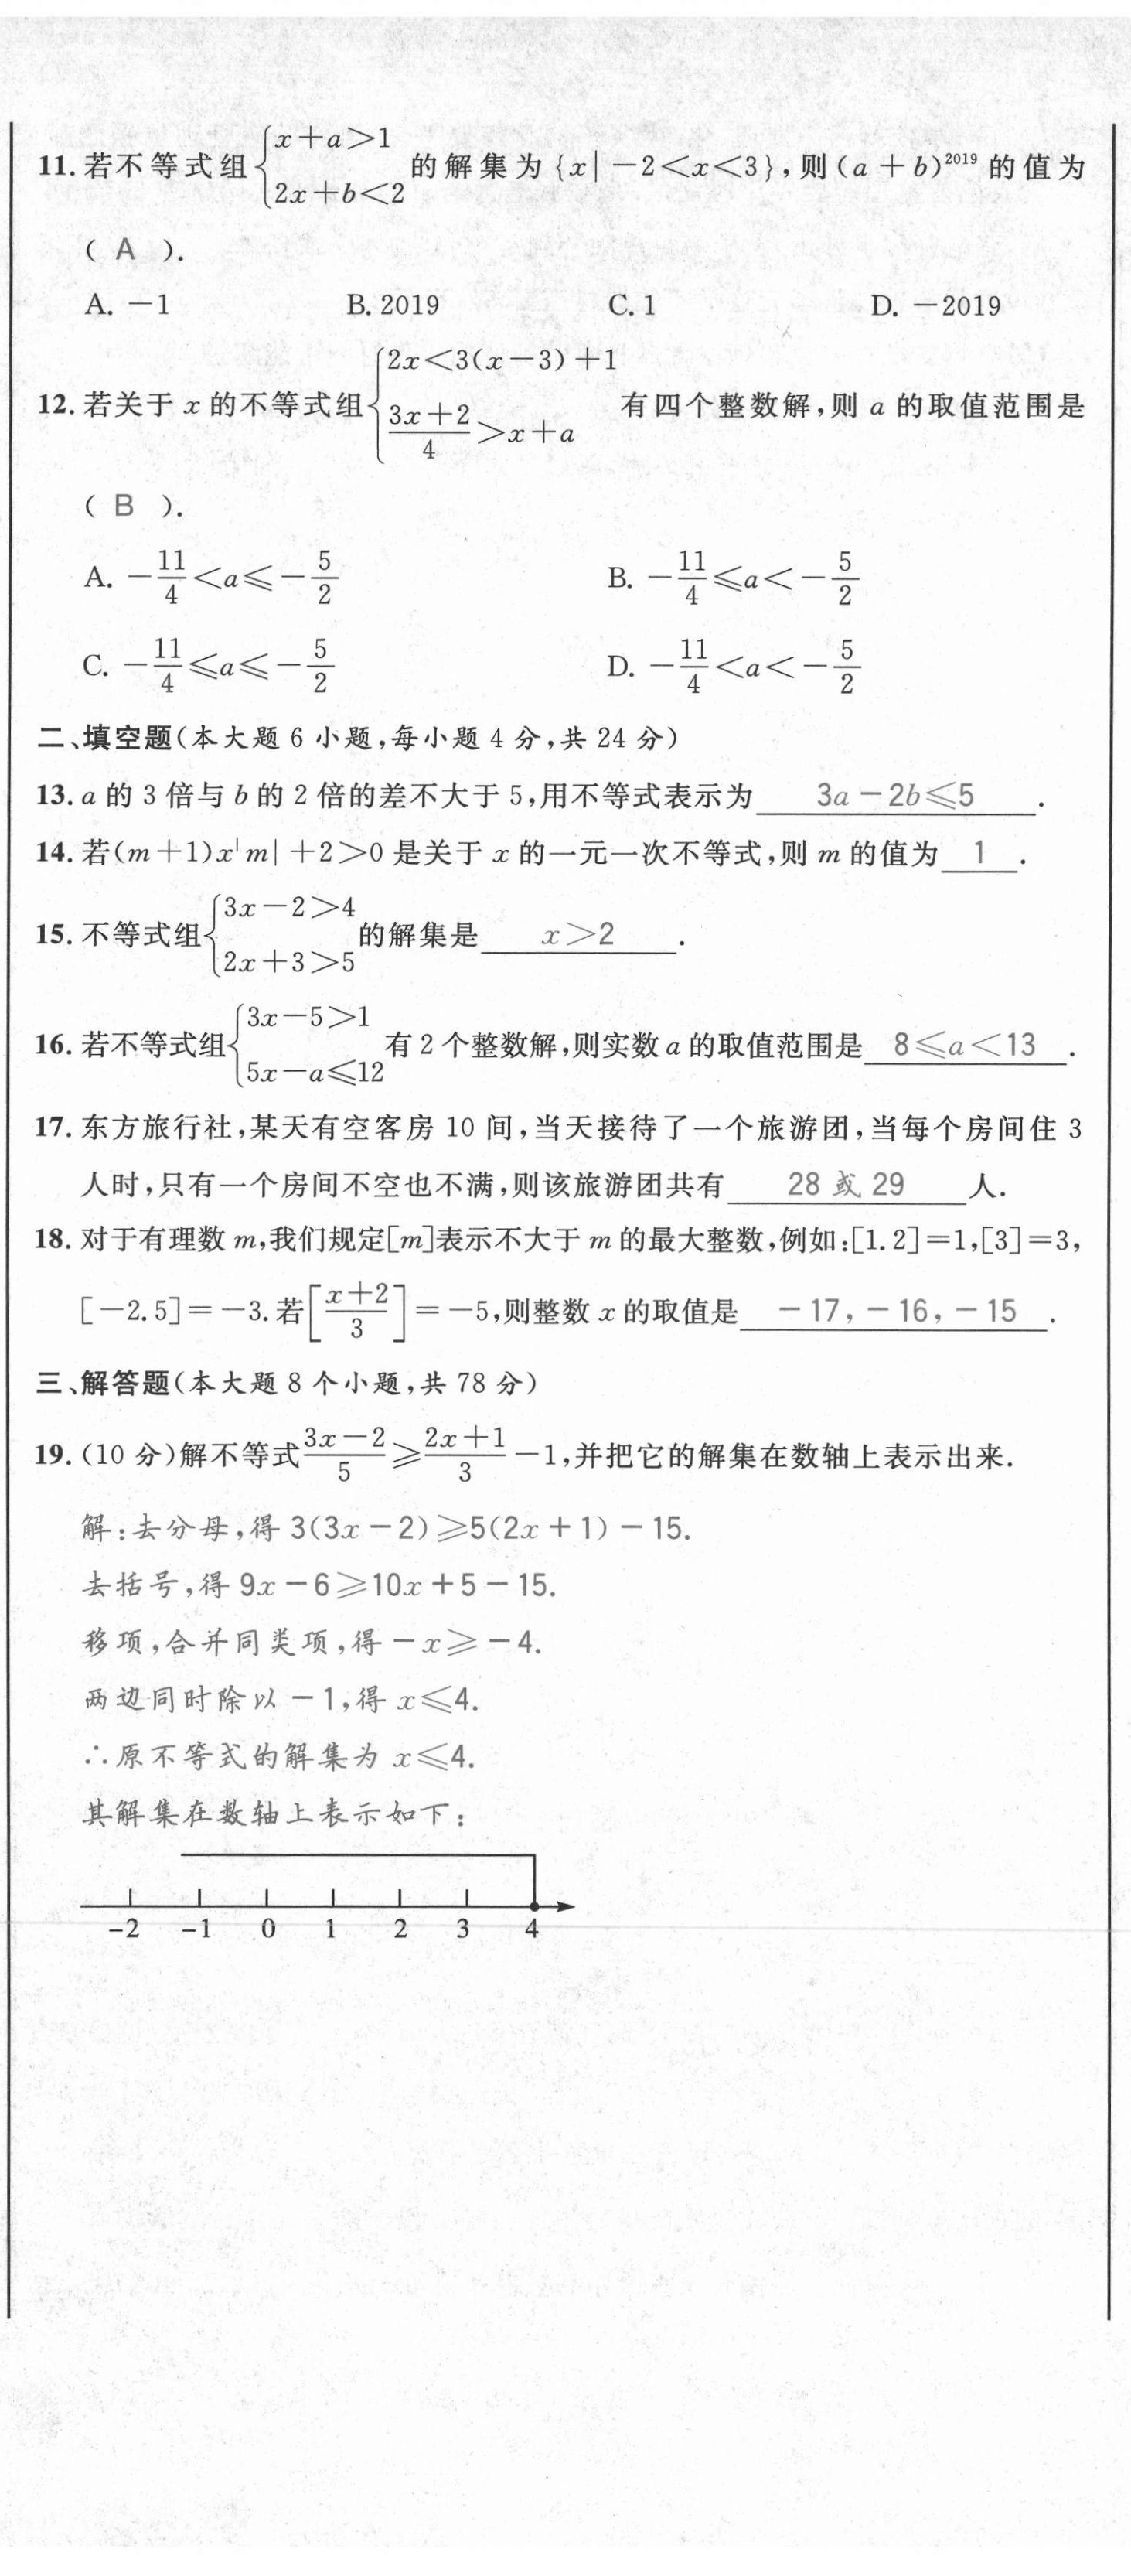 11. 若不等式组{x+a>1 2x+b<2 的解集为{x|-2<x<3},则(a+b)²⁰¹⁹的值为
( A ).
A. -1 B. 2019 C. 1 D. -2019
12. 若关于x的不等式组{2x<3(x-3)+1 (3x+2)/4>x+a 有四个整数解,则a的取值范围是
( B ).
A. -11/4<a≤-5/2 B. -11/4≤a<-5/2
C. -11/4≤a≤-5/2 D. -11/4<a<-5/2
二、填空题(本大题6小题,每小题4分,共24分)
13. a的3倍与b的2倍的差不大于5,用不等式表示为 3a-2b≤5 .
14. 若(m+1)x|m|+2>0是关于x的一元一次不等式,则m的值为 1 .
15. 不等式组{3x-2>4 2x+3>5 的解集是 x>2 .
16. 若不等式组{3x-5>1 5x-a≤12 有2个整数解,则实数a的取值范围是 8≤a<13 .
17. 东方旅行社,某天有空客房10间,当天接待了一个旅游团,当每个房间住3
人时,只有一个房间不空也不满,则该旅游团共有 28或29 人.
18. 对于有理数m,我们规定[m]表示不大于m的最大整数,例如:[1.2]=1,[3]=3,
[-2.5]=-3.若[(x+2)/3]=-5,则整数x的取值是 -17,-16,-15 .
三、解答题(本大题8个小题,共78分)
19. (10分)解不等式(3x-2)/5≥(2x+1)/3-1,并把它的解集在数轴上表示出来.
解:去分母,得3(3x-2)≥5(2x+1)-15.
去括号,得9x-6≥10x+5-15.
移项,合并同类项,得-x≥-4.
两边同时除以-1,得x≤4.
∴原不等式的解集为x≤4.
其解集在数轴上表示如下:
-2 -1 0 1 2 3 4